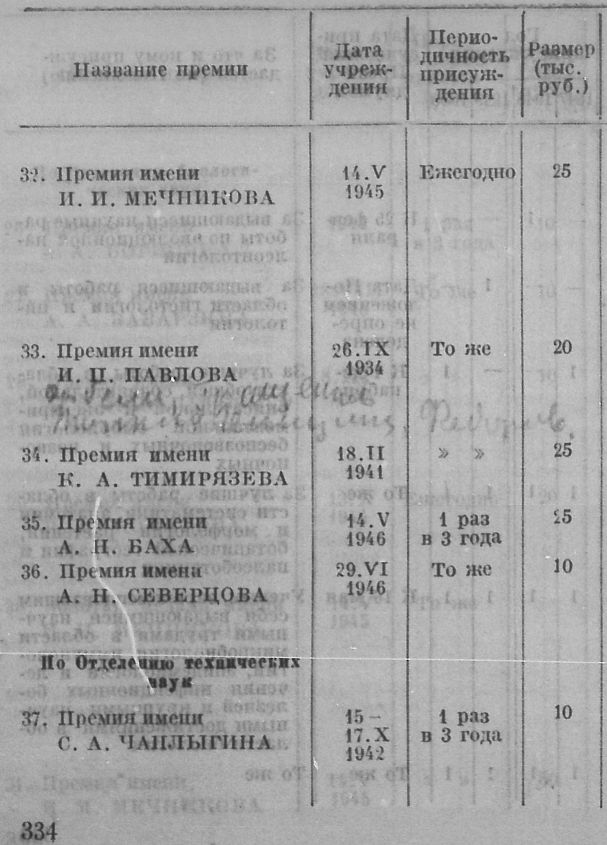 Название премии
Дата учреж-
дения
Перио-
дичность
присуж-
дения
Размер
(тыс.
руб.)
32. Премия имени 14.V Ежегодно 25
И. И. МЕЧНИКОВА 1945
33. Премия имени 26.IX То же 20
И. П. ПАВЛОВА 1934
34. Премия имени 18.II » » 25
К. А. ТИМИРЯЗЕВА 1941
35. Премия имени 14.V 1 раз 25
А. Н. БАХА 1946 в 3 года
36. Премия имени 29.VI То же 10
А. Н. СЕВЕРЦОВА 1946
По Отделению технических
наук
37. Премия имени 15– 1 раз 10
С. А. ЧАПЛЫГИНА 17.X в 3 года
1942
334